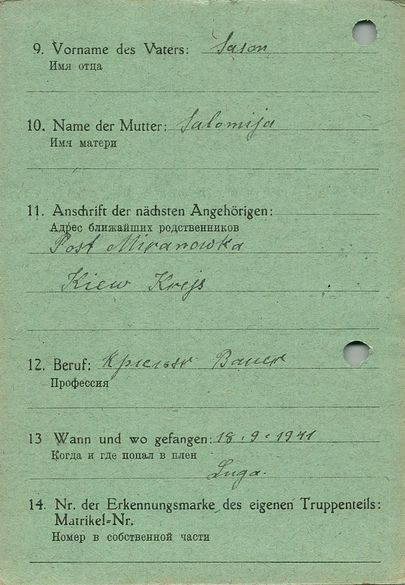 9. Vorname des Vaters: Sason
Имя отца
10. Name der Mutter: Salomija
Имя матери
11. Anschrift der nächsten Angehörigen:
Адрес ближайших родственников
Post Miranowka
Kiew Krejs
12. Beruf: Bauer
Профессия
13 Wann und wo gefangen: 18.9.1941
Когда и где попал в плен
Luga.
14. Nr. der Erkennungsmarke des eigenen Truppenteils:
Matrikel=Nr.
Номер в собственной части